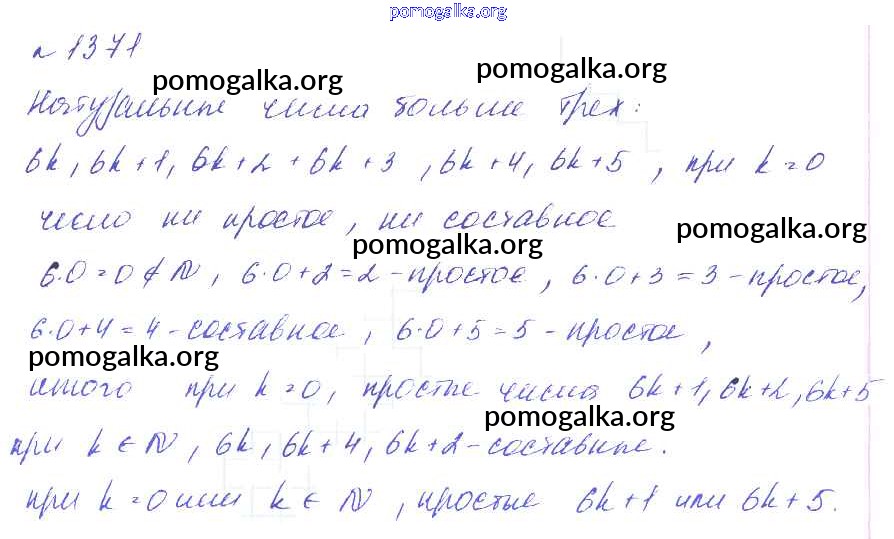 pomogalka.org
№ 1371
pomogalka.org
pomogalka.org
Натуральные числа больше трех:
6k, 6k+1, 6k+2 + 6k+3, 6k+4, 6k+5, при k=0
число ни простое, ни составное
pomogalka.org
pomogalka.org
6·0=0∉N, 6·0+2=2-простое, 6·0+3=3-простое,
6·0+4=4-составное, 6·0+5=5-простое,
pomogalka.org
итого при k=0, простые числа 6k+1, 6k+2, 6k+5
pomogalka.org
при k∈N, 6k, 6k+4, 6k+2-составные.
при k=0 или k∈N, простые 6k+1 или 6k+5.